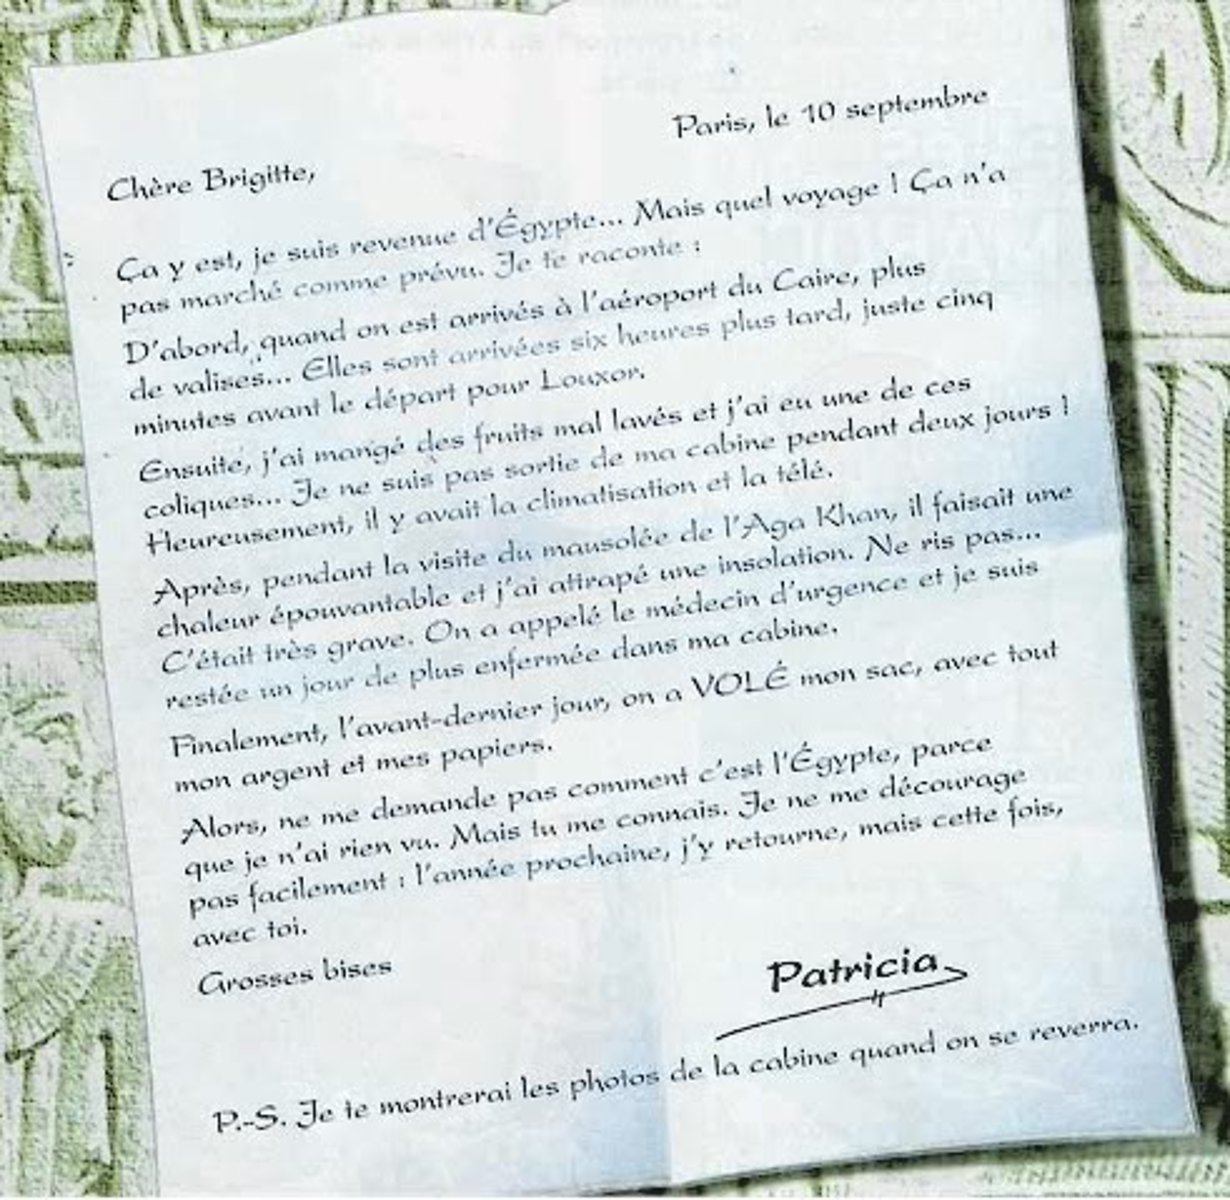 Paris, le 10 septembre
Chère Brigitte,
Ça y est, je suis revenue d'Égypte... Mais quel voyage ! Ça n'a
pas marché comme prévu. Je te raconte :
D'abord, quand on est arrivés à l'aéroport du Caire, plus
de valises... Elles sont arrivées six heures plus tard, juste cinq
minutes avant le départ pour Louxor.
Ensuite, j'ai mangé des fruits mal lavés et j'ai eu une de ces
coliques... Je ne suis pas sortie de ma cabine pendant deux jours !
Heureusement, il y avait la climatisation et la télé.
Après, pendant la visite du mausolée de l'Aga Khan, il faisait une
chaleur épouvantable et j'ai attrapé une insolation. Ne ris pas...
C'était très grave. On a appelé le médecin d'urgence et je suis
restée un jour de plus enfermée dans ma cabine.
Finalement, l'avant-dernier jour, on a VOLÉ mon sac, avec tout
mon argent et mes papiers.
Alors, ne me demande pas comment c'est l'Égypte, parce
que je n'ai rien vu. Mais tu me connais. Je ne me décourage
pas facilement : l'année prochaine, j'y retourne, mais cette fois,
avec toi.
Grosses bises
Patricia
P.-S. Je te montrerai les photos de la cabine quand on se reverra.